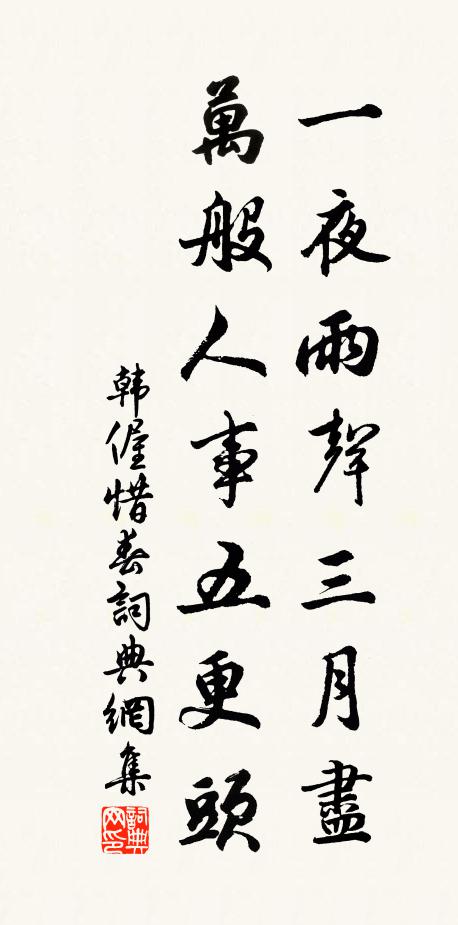 一夜雨聲三月盡
萬般人事五更頭
韩偓惜春詞典網集
詞典网印